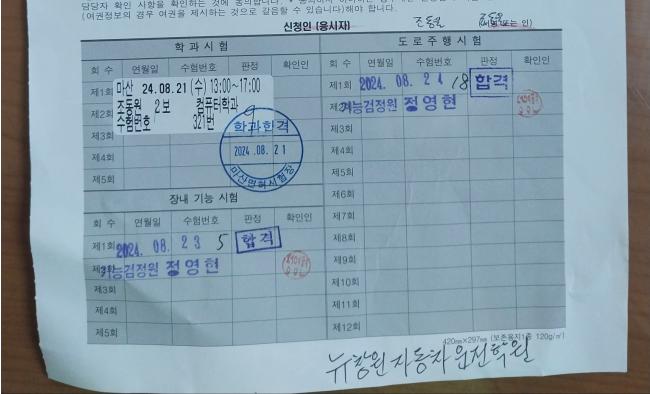 담당자 확인 사항을 확인하는 것에 동의합니다.
(여권정보의 경우 여권을 제시하는 것으로 갈음할 수 있습니다)해야 합니다.
신청인 (응시자) 조동원 (서명 또는 인)
학 과 시 험
회 수 연월일 수험번호 판정 확인인
제1회
제2회
제3회
제4회
제5회
마산 24.08.21 (수) 13:00~17:00
조동원 2보 컴퓨터학과
수험번호 321번
학과합격
2024.08.21
마산면허시험장
장내 기능 시험
회 수 연월일 수험번호 판정 확인인
제1회 2024. 08. 23 5 합격
기능검정원 정영현
제3회
제4회
제5회
도 로 주 행 시 험
회 수 연월일 수험번호 판정 확인인
제1회 2024. 08. 24 18 합격
기능검정원 정영현
제3회
제4회
제5회
제6회
제7회
제8회
제9회
제10회
제11회
제12회
420㎜×297㎜ (보존용지1종 120g/㎡)
뉴창원자동차운전학원